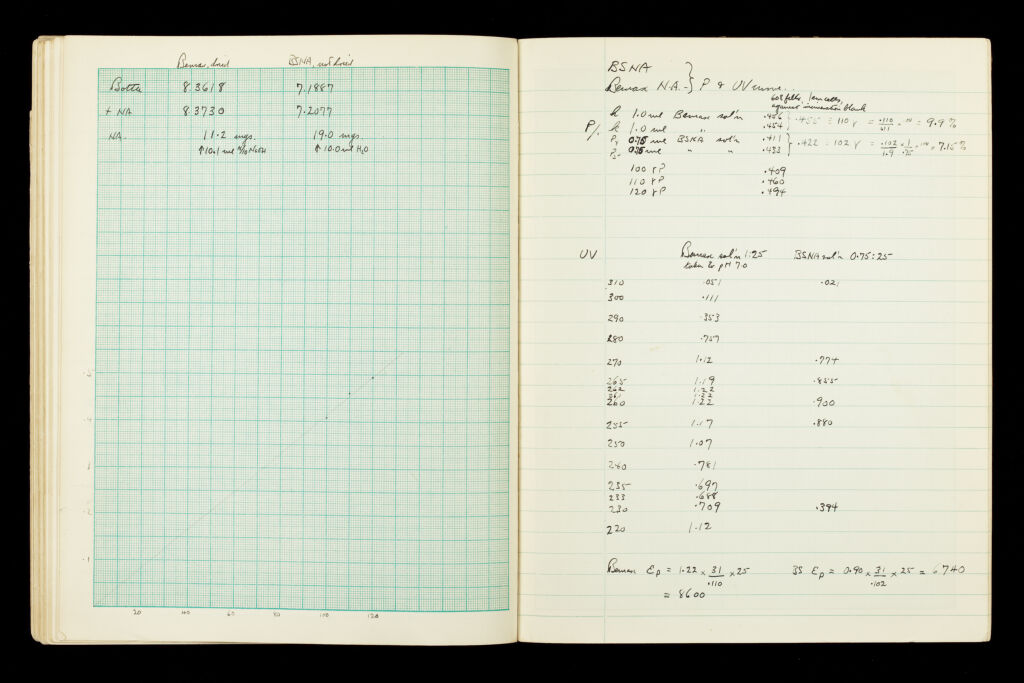 Bemax, dried BSNA, not dried
Bottle 8.3618 7.1887
+ NA 8.3730 7.2077
NA. 11.2 mgs. 19.0 mgs.
↑ 10.1 ml N/50 NaOH ↑ 10.0 ml H2O
.5
.4
.3
.2
.1
20 40 60 80 100 120
BSNA
Bemax N.A. } P & UV curve..
608 filter, 1cm cells,
against incineration blank
P/. 1.0 ml Bemax sol'n .456
1.0 ml " .454 } .455 ≡ 110 γ = .110/11.1 × 100 = 9.9%
P1 0.75 ml BSNA sol'n .411
P2 0.75 ml " " .433 } .422 ≡ 102 γ = .102/1.9 × 1/.75 × 100 = 7.15%
100 γP .409
110 γP .460
120 γP .494
UV Bemax sol'n 1:25 BSNA sol'n 0.75:25
taken to pH 7.0
310 .051 .021
300 .111
290 .353
280 .757
270 1.12 .774
265 1.19 .855
262 1.22
261 1.22
260 1.22 .900
255 1.17 .880
250 1.07
240 .781
235 .697
233 .688
230 .709 .394
220 1.12
Bemax Ep = 1.22 × 31/.110 × 25 BS Ep = 0.90 × 31/.102 × 25 = 6740
= 8600